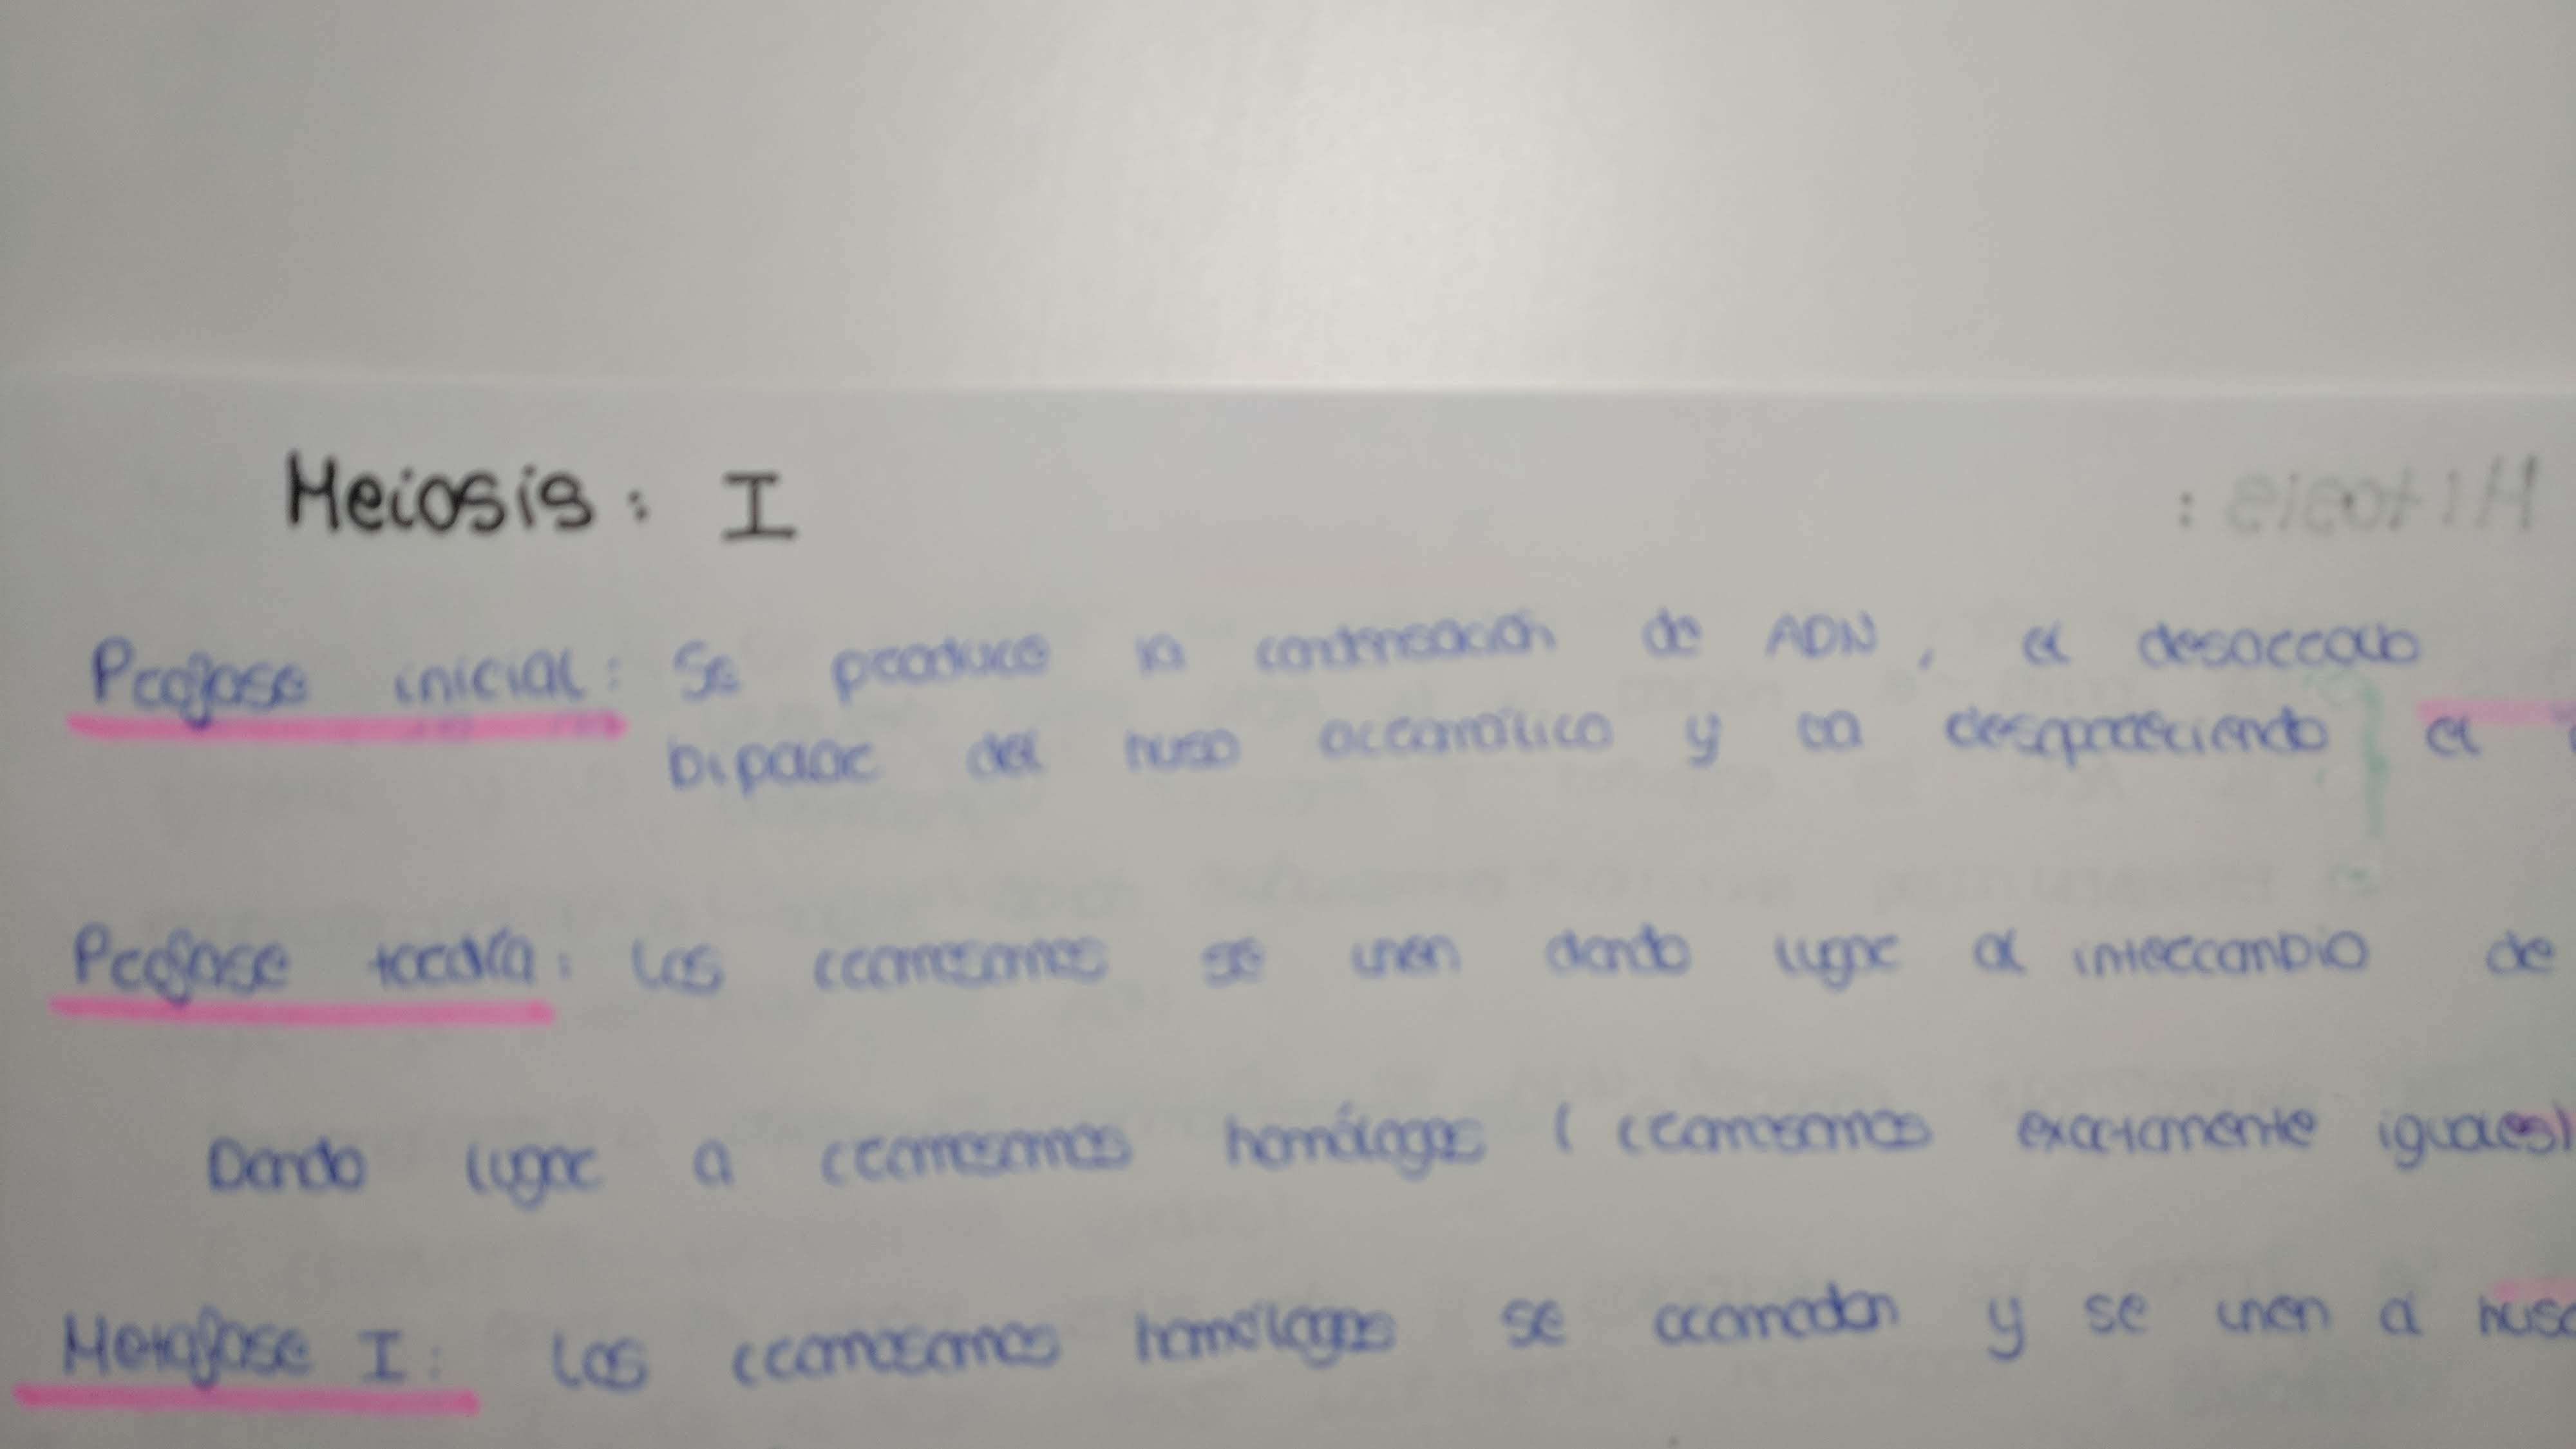 Meiosis: I
Profase inicial: Se produce la condensación de ADN, el desarrollo
bipolar del huso acromático y va desapareciendo el
Profase tardía: Los cromosomas se unen dando lugar al intercambio de
Dando lugar a cromosomas homólogos (cromosomas exactamente iguales)
Metafase I: Los cromosomas homólogos se acomodan y se unen al huso
Mitosis: